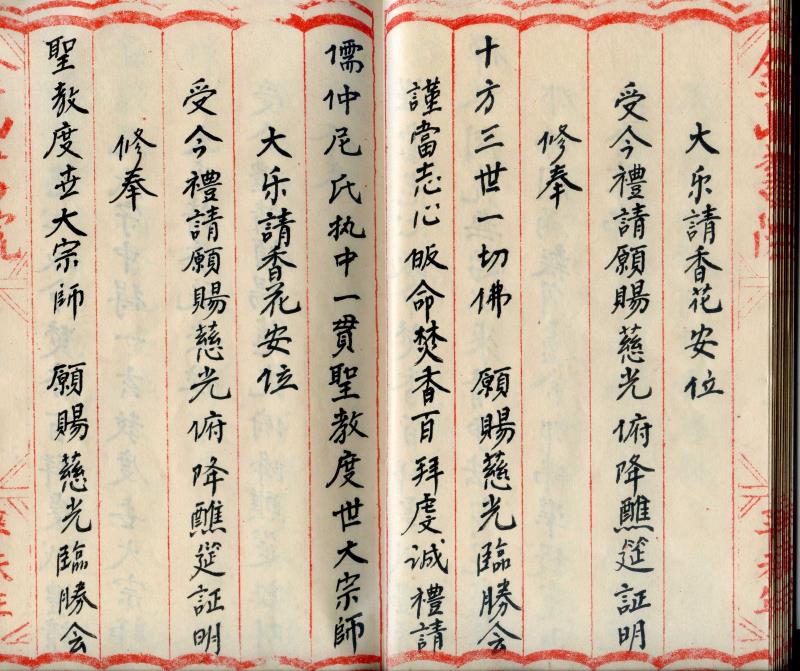 大乐請香花安位
受今禮請願賜慈光俯降醮筵証明
修奉
十方三世一切佛 願賜慈光臨勝会
謹當志心皈命焚香百拜虔诚禮請
儒仲尼氏执中一贯聖教度世大宗師
大乐請香花安位
受今禮請願賜慈光俯降醮筵証明
修奉
聖教度世大宗師 願賜慈光臨勝会